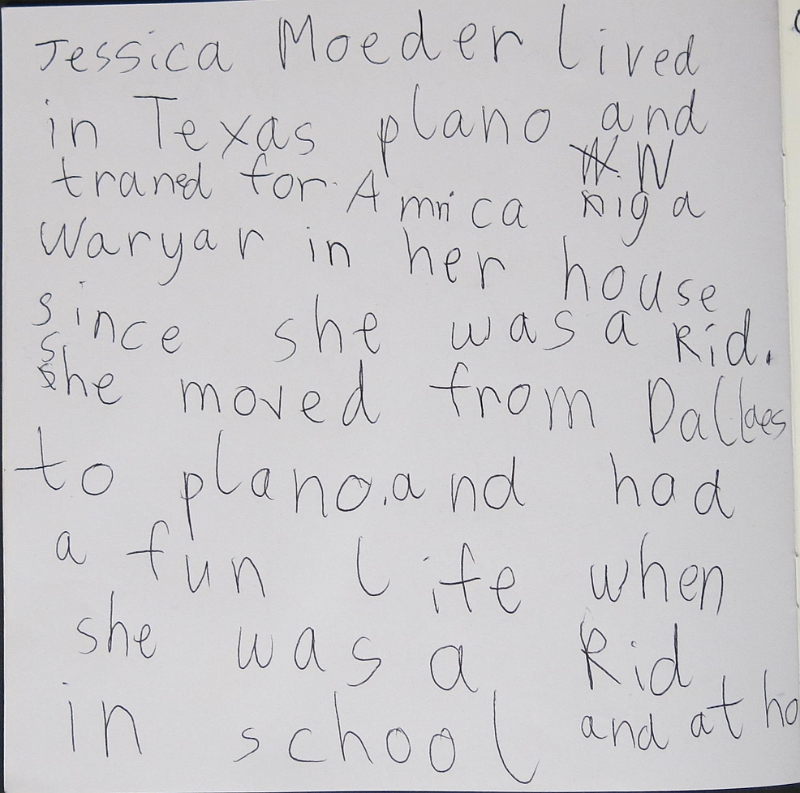 Jessica Moeder lived
in Texas plano and
traned for Amrica Niga
Waryar in her house
since she was a Kid.
She moved from Dallaes
to plano. and had
a fun life when
she was a Kid
in school and at ho